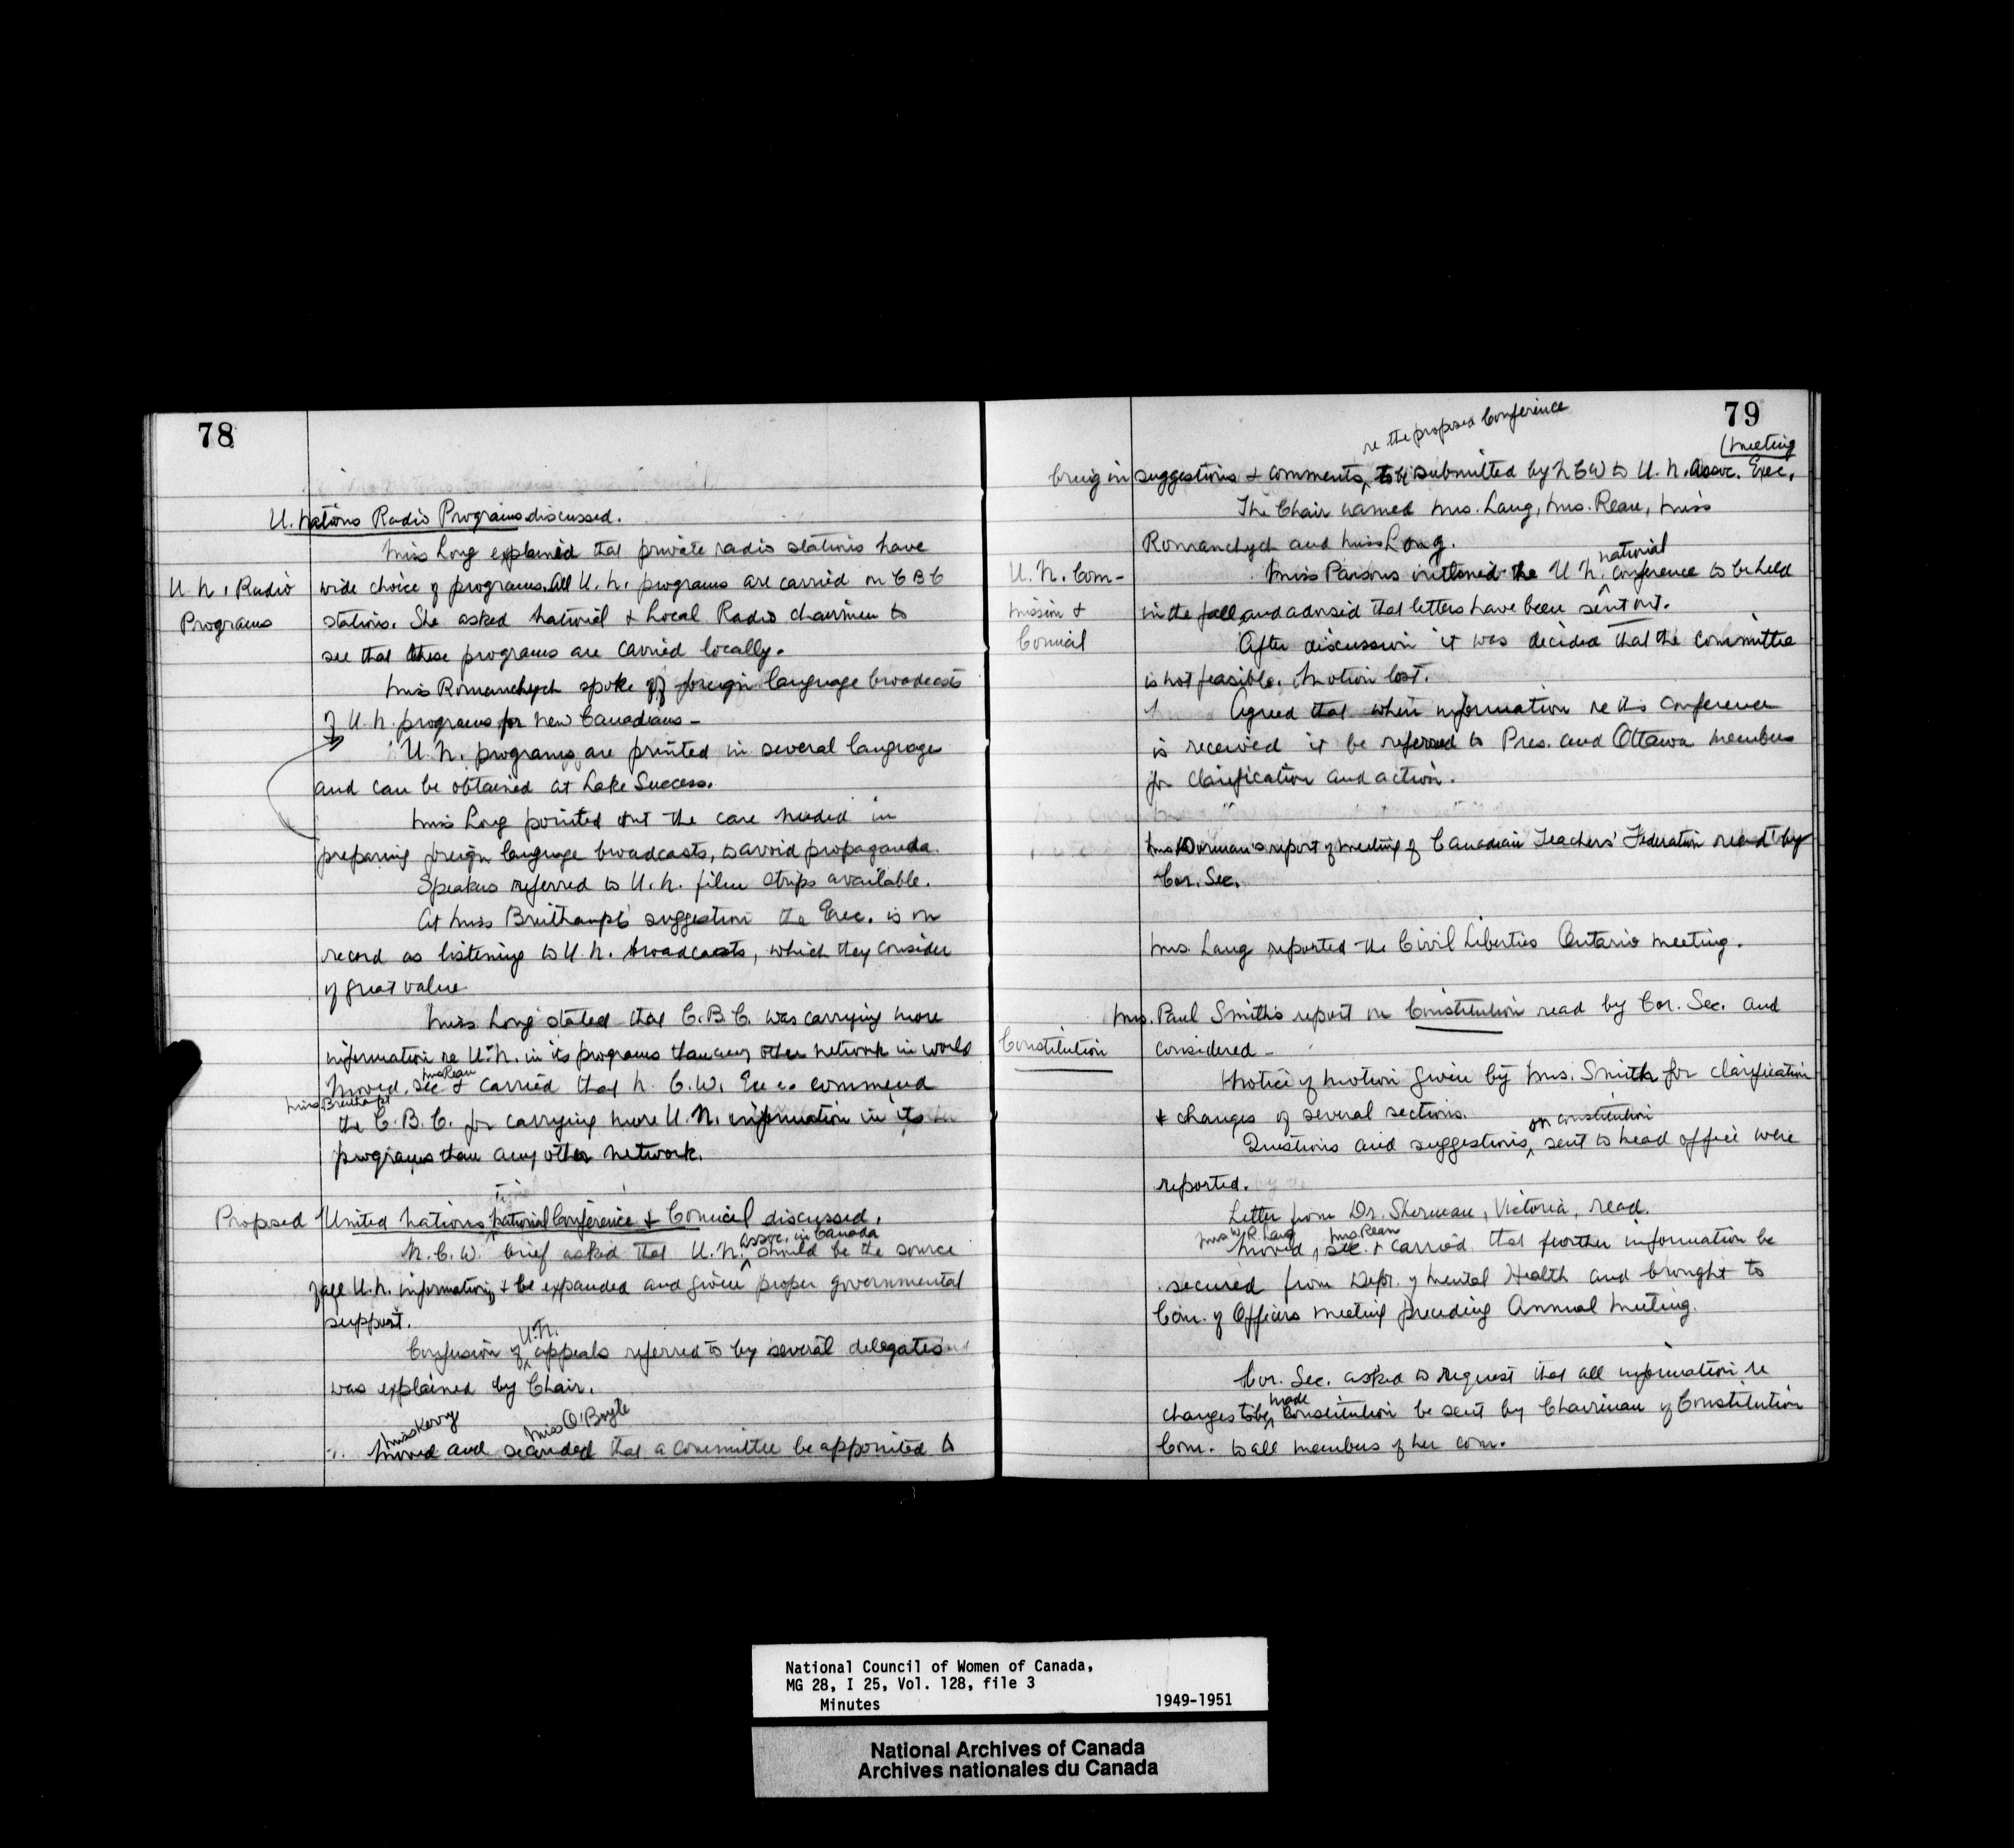 78
U. Nations Radio Programs discussed.
Miss Long explained that private radio stations have
U.N. Radio
Programs
wide choice of programs. All U.N. programs are carried on C B C
stations. She asked National & Local Radio chairmen to
see that these programs are carried locally.
Miss Romanchych spoke of foreign language broadcasts
of U.N. programs for New Canadians –
U.N. programs are printed in several languages
and can be obtained at Lake Success.
Miss Long pointed out the care needed in
preparing foreign language broadcasts, to avoid propaganda.
Speakers referred to U.N. film strips available.
At Miss Breithaupt's suggestion the Exec. is on
record as listening to U.N. broadcasts, which they consider
of great value
Miss Long stated that C.B.C. was carrying more
information re U.N. in its programs than any other network in world
Mrs Rean
Moved, sec & carried that N.C.W. Exec. commend
Miss Breithaupt
the C.B.C. for carrying more U.N. information in its
programs than any other network.
Proposed United Nations National Conference & Council discussed.
Assoc. in Canada
N.C.W. brief asked that U.N. should be the source
of all U.N. information, & be expanded and given proper governmental
support.
U.N.
Confusion of appeals referred to by several delegates
was explained by Chair.
Miss Kerry Miss O'Boyle
Moved and seconded that a committee be appointed to
79
re the proposed Conference
meeting
bring in suggestions & comments, to be submitted by N C W to U.N. Assoc. Exec.
The Chair named Mrs. Lang, Mrs. Rean, Miss
Romanchych and Miss Long.
U.N. Com-
mission &
Council
national
Miss Parsons outlined the U N. Conference to be held
in the fall and advised that letters have been sent out.
After discussion it was decided that the committee
is not feasible. Motion lost.
Agreed that when information re this conference
is received it be referred to Pres. and Ottawa members
for clarification and action.
Mrs Dorman's report of meeting of Canadian Teachers' Federation read by
Cor. Sec.
Mrs. Lang reported the Civil Liberties Ontario meeting.
Mrs. Paul Smith's report on Constitution read by Cor. Sec. and
Constitution
considered –
Notice of motion given by Mrs. Smith for clarification
& changes of several sections.
on constitution
Questions and suggestions, sent to head office were
reported.
Letter from Dr. Sherman, Victoria, read.
Mrs W. R. Lang Mrs. Rean
Moved, sec. & carried that further information be
secured from Dept. of Mental Health and brought to
Com. of Officers meeting preceding Annual Meeting.
Cor. Sec. asked to request that all information re
made
changes to be Constitution be sent by Chairman of Constitution
Com. to all members of her com.
National Council of Women of Canada,
MG 28, I 25, Vol. 128, file 3
Minutes 1949-1951
National Archives of Canada
Archives nationales du Canada